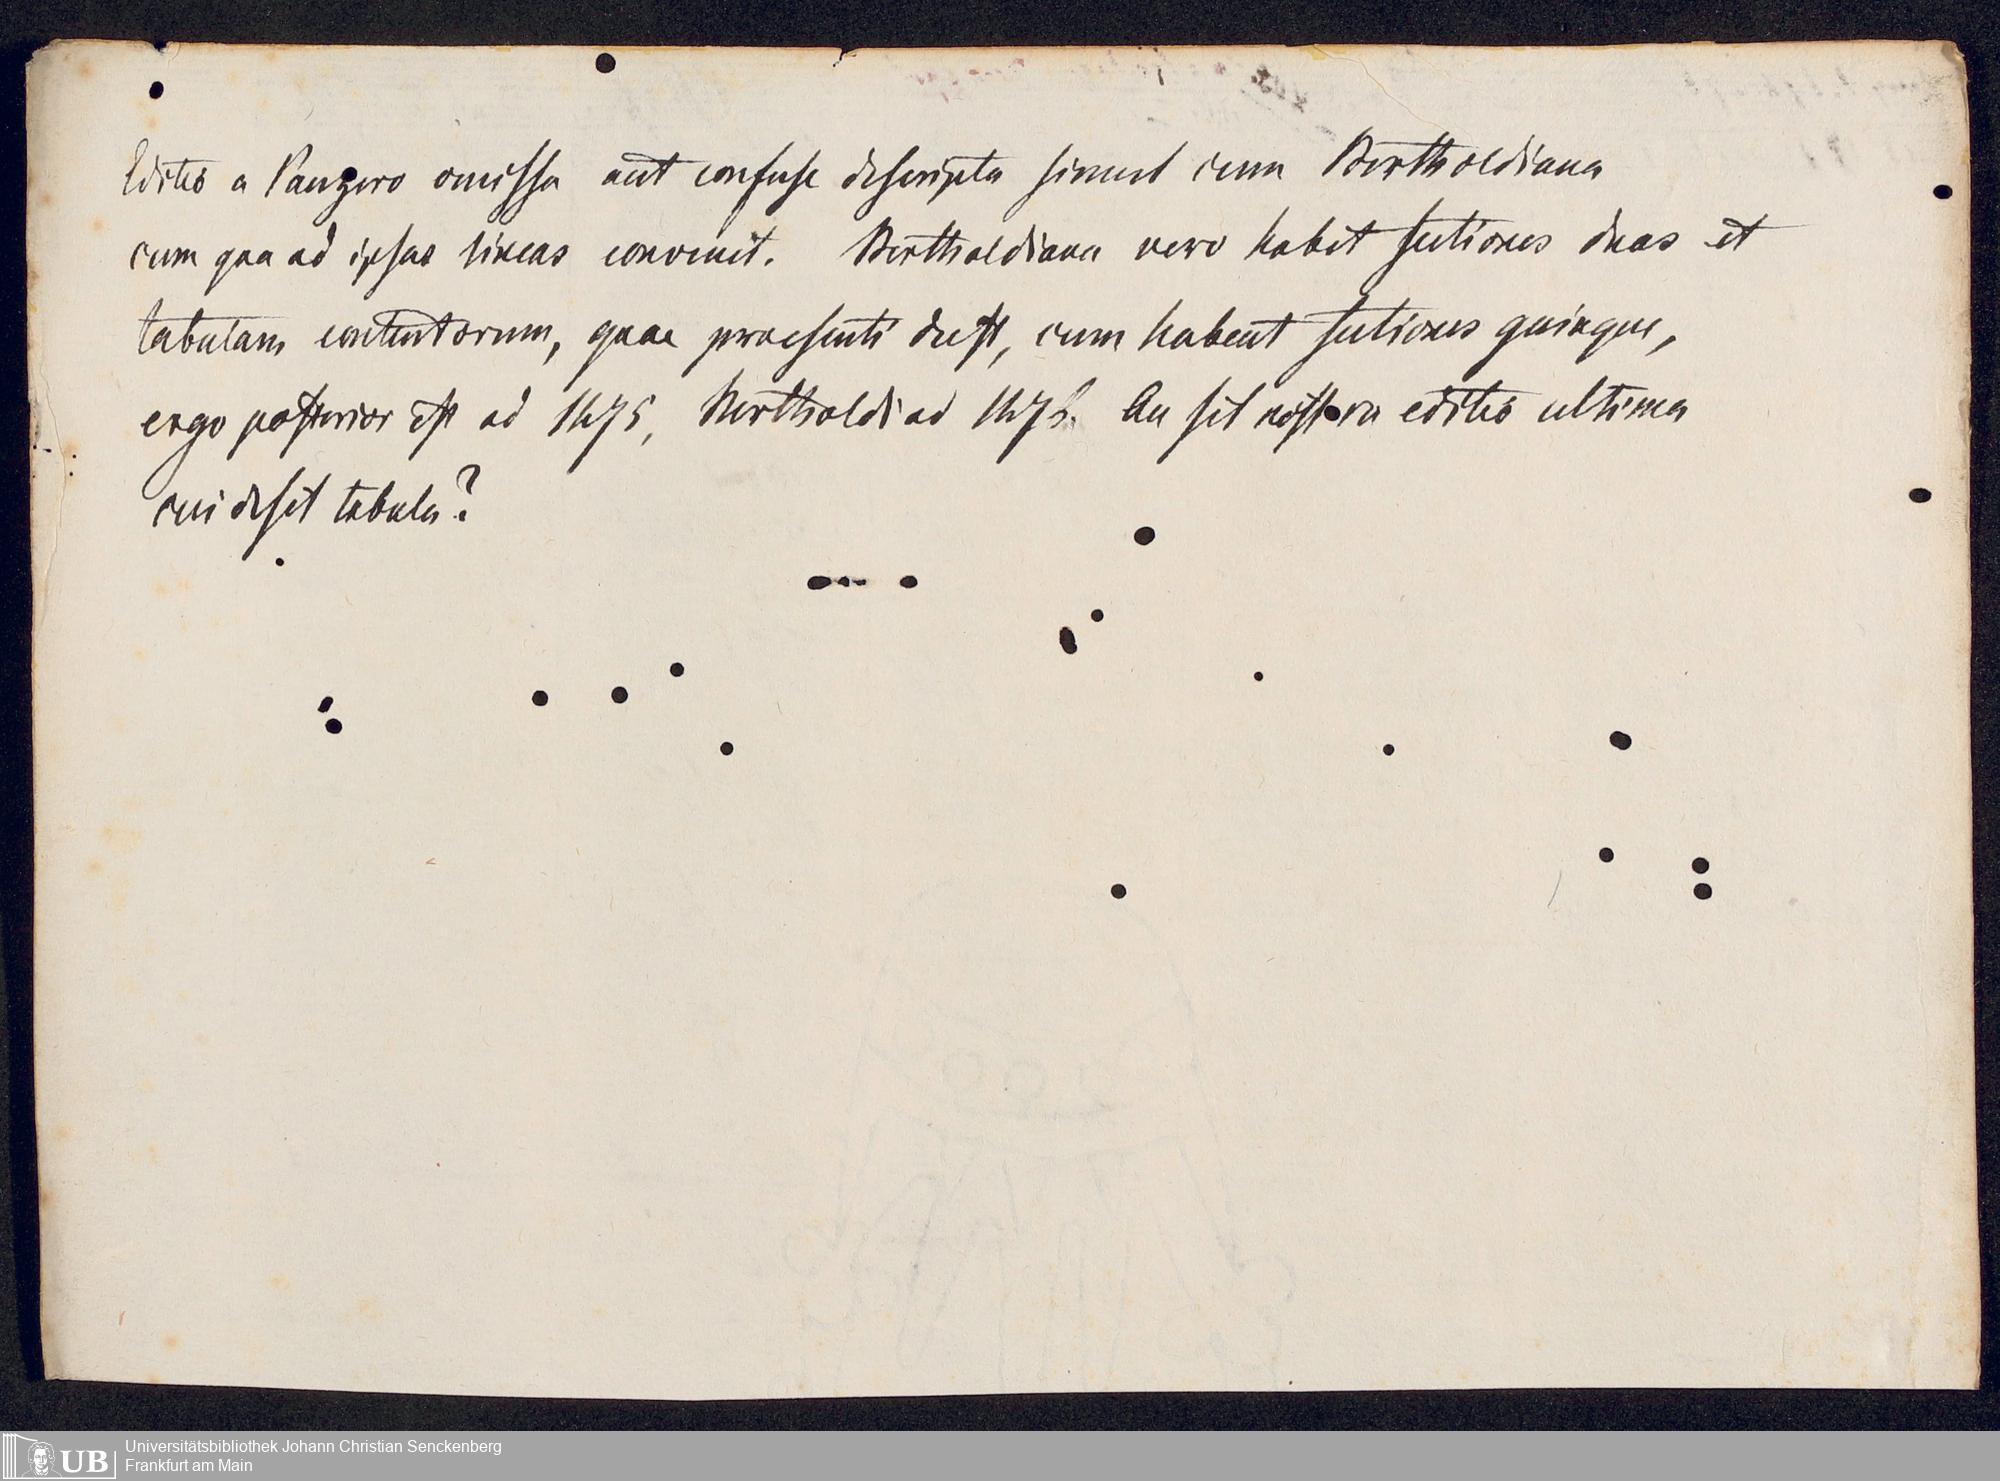 Editio a Panzero omissa aut confuse descripta simul cum Bertholdiana
cum qua ad ipsas lineas convenit. Bertholdiana vero habet sectiones duas et
tabulam contentorum, quae praesenti deest, cum habeat sectiones quinque,
ergo posterior est ad 1475, Bertholdi ad 147. An sit nostra editio ultima
cui desit tabula?
UB
Universitätsbibliothek Johann Christian Senckenberg
Frankfurt am Main